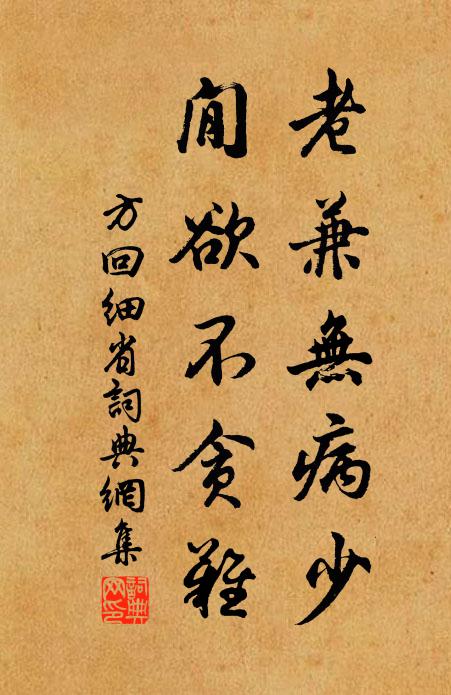 老兼無病少
閒欲不貪難
方回細省詞典網集
詞典
网印